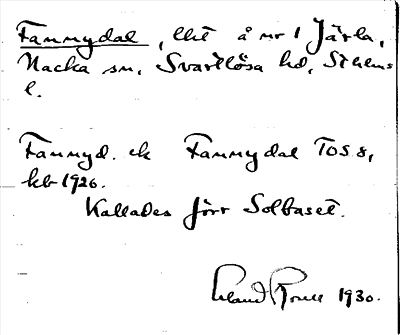 Fannydal, lht å nr 1 Järla,
Nacka sn, Svartlösa hd, Sthlms
l.
Fannyd. ek Fannydal TOS 8,
kb 1926.
Kallades förr Solbaset.
1930.